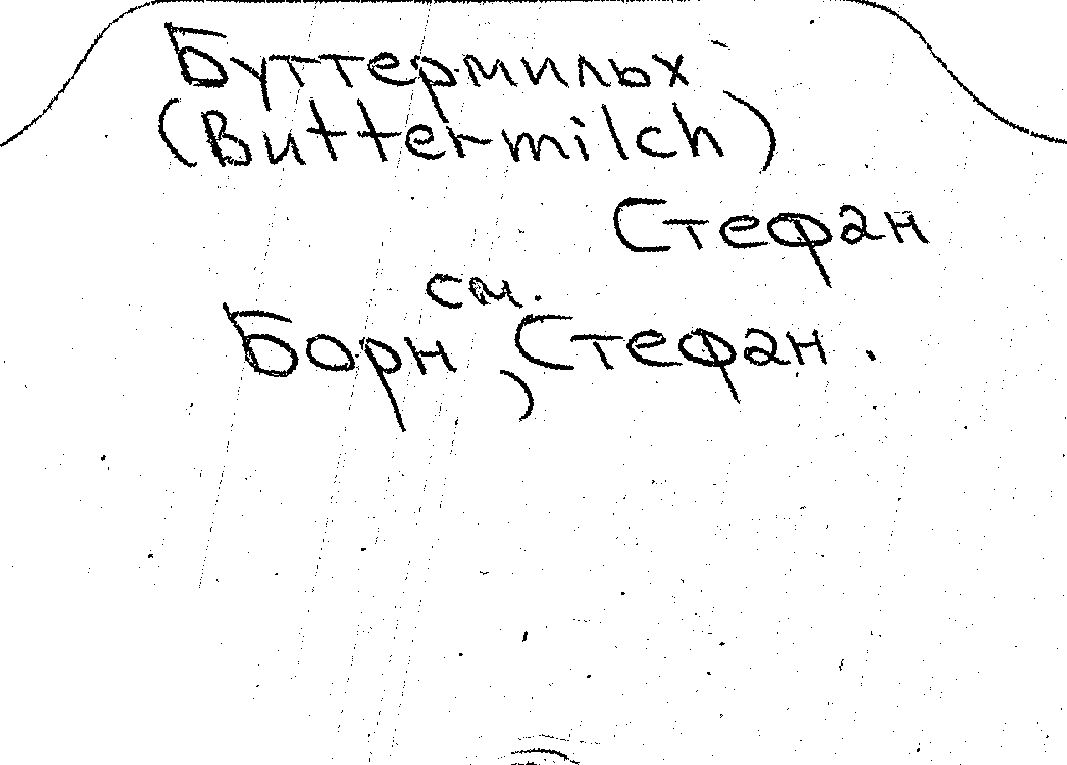 Буттермильх
(Buttermilch)
Стефан
см.
Борн, Стефан.